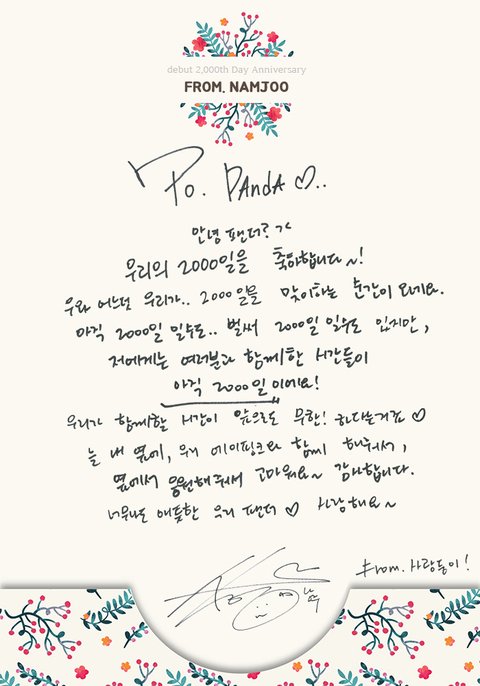 debut 2,000th Day Anniversary
FROM. NAMJOO
To. PANdA ♡..
안녕 팬더? ㅅ
우리의 2000일을 축하합니다~!
우와 어느덧 우리가.. 2000일을 맞이하는 순간이 오네요.
아직 2000일 일수도.. 벌써 2000일 일수도 있지만,
저에게는 여러분과 함께한 시간들이
아직 2000일이에요!
우리가 함께할 시간이 앞으로도 무한! 하다는거죠 ♡
늘 내 옆에, 우리 에이핑크와 함께 해줘서,
옆에서 응원해주셔서 고마워요~ 감사합니다.
너무나도 애틋한 우리 팬더 ♡ 사랑해요~
From. 사랑둥이!